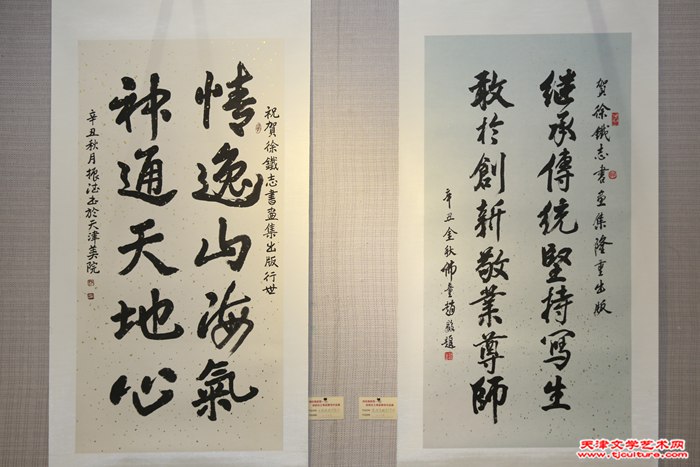 祝賀徐鐵志書畫集出版行世
情逸山海氣
神通天地心
辛丑秋月振德書於天津美院
賀徐鐵志書畫集隆重出版
继承傳統堅持寫生
敢於創新敬業尊師
辛丑金秋佛童趙毅題
天津文学艺术网
www.tjculture.com